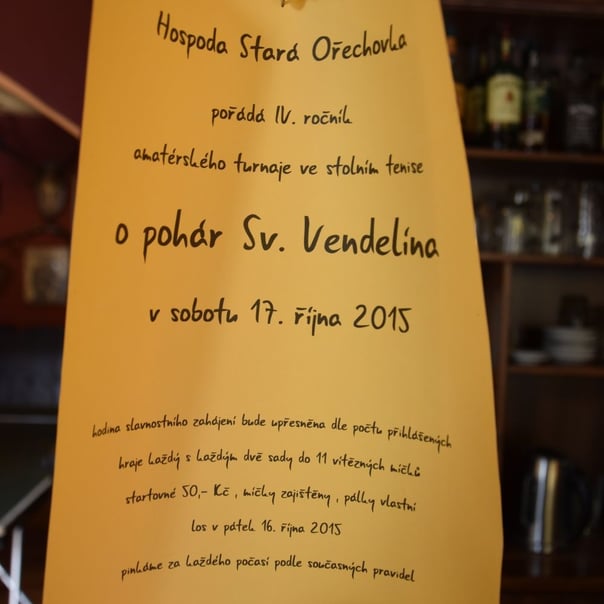 Hospoda Stará Ořechovka
pořádá IV. ročník
amatérského turnaje ve stolním tenise
o pohár Sv. Vendelína
v sobotu 17. října 2015
hodina slavnostního zahájení bude upřesněna dle počtu přihlášených
hraje každý s každým dvě sady do 11 vítězných míčků
startovné 50,- Kč , míčky zajištěny , pálky vlastní
los v pátek 16. října 2015
pinkáme za každého počasí podle současných pravidel